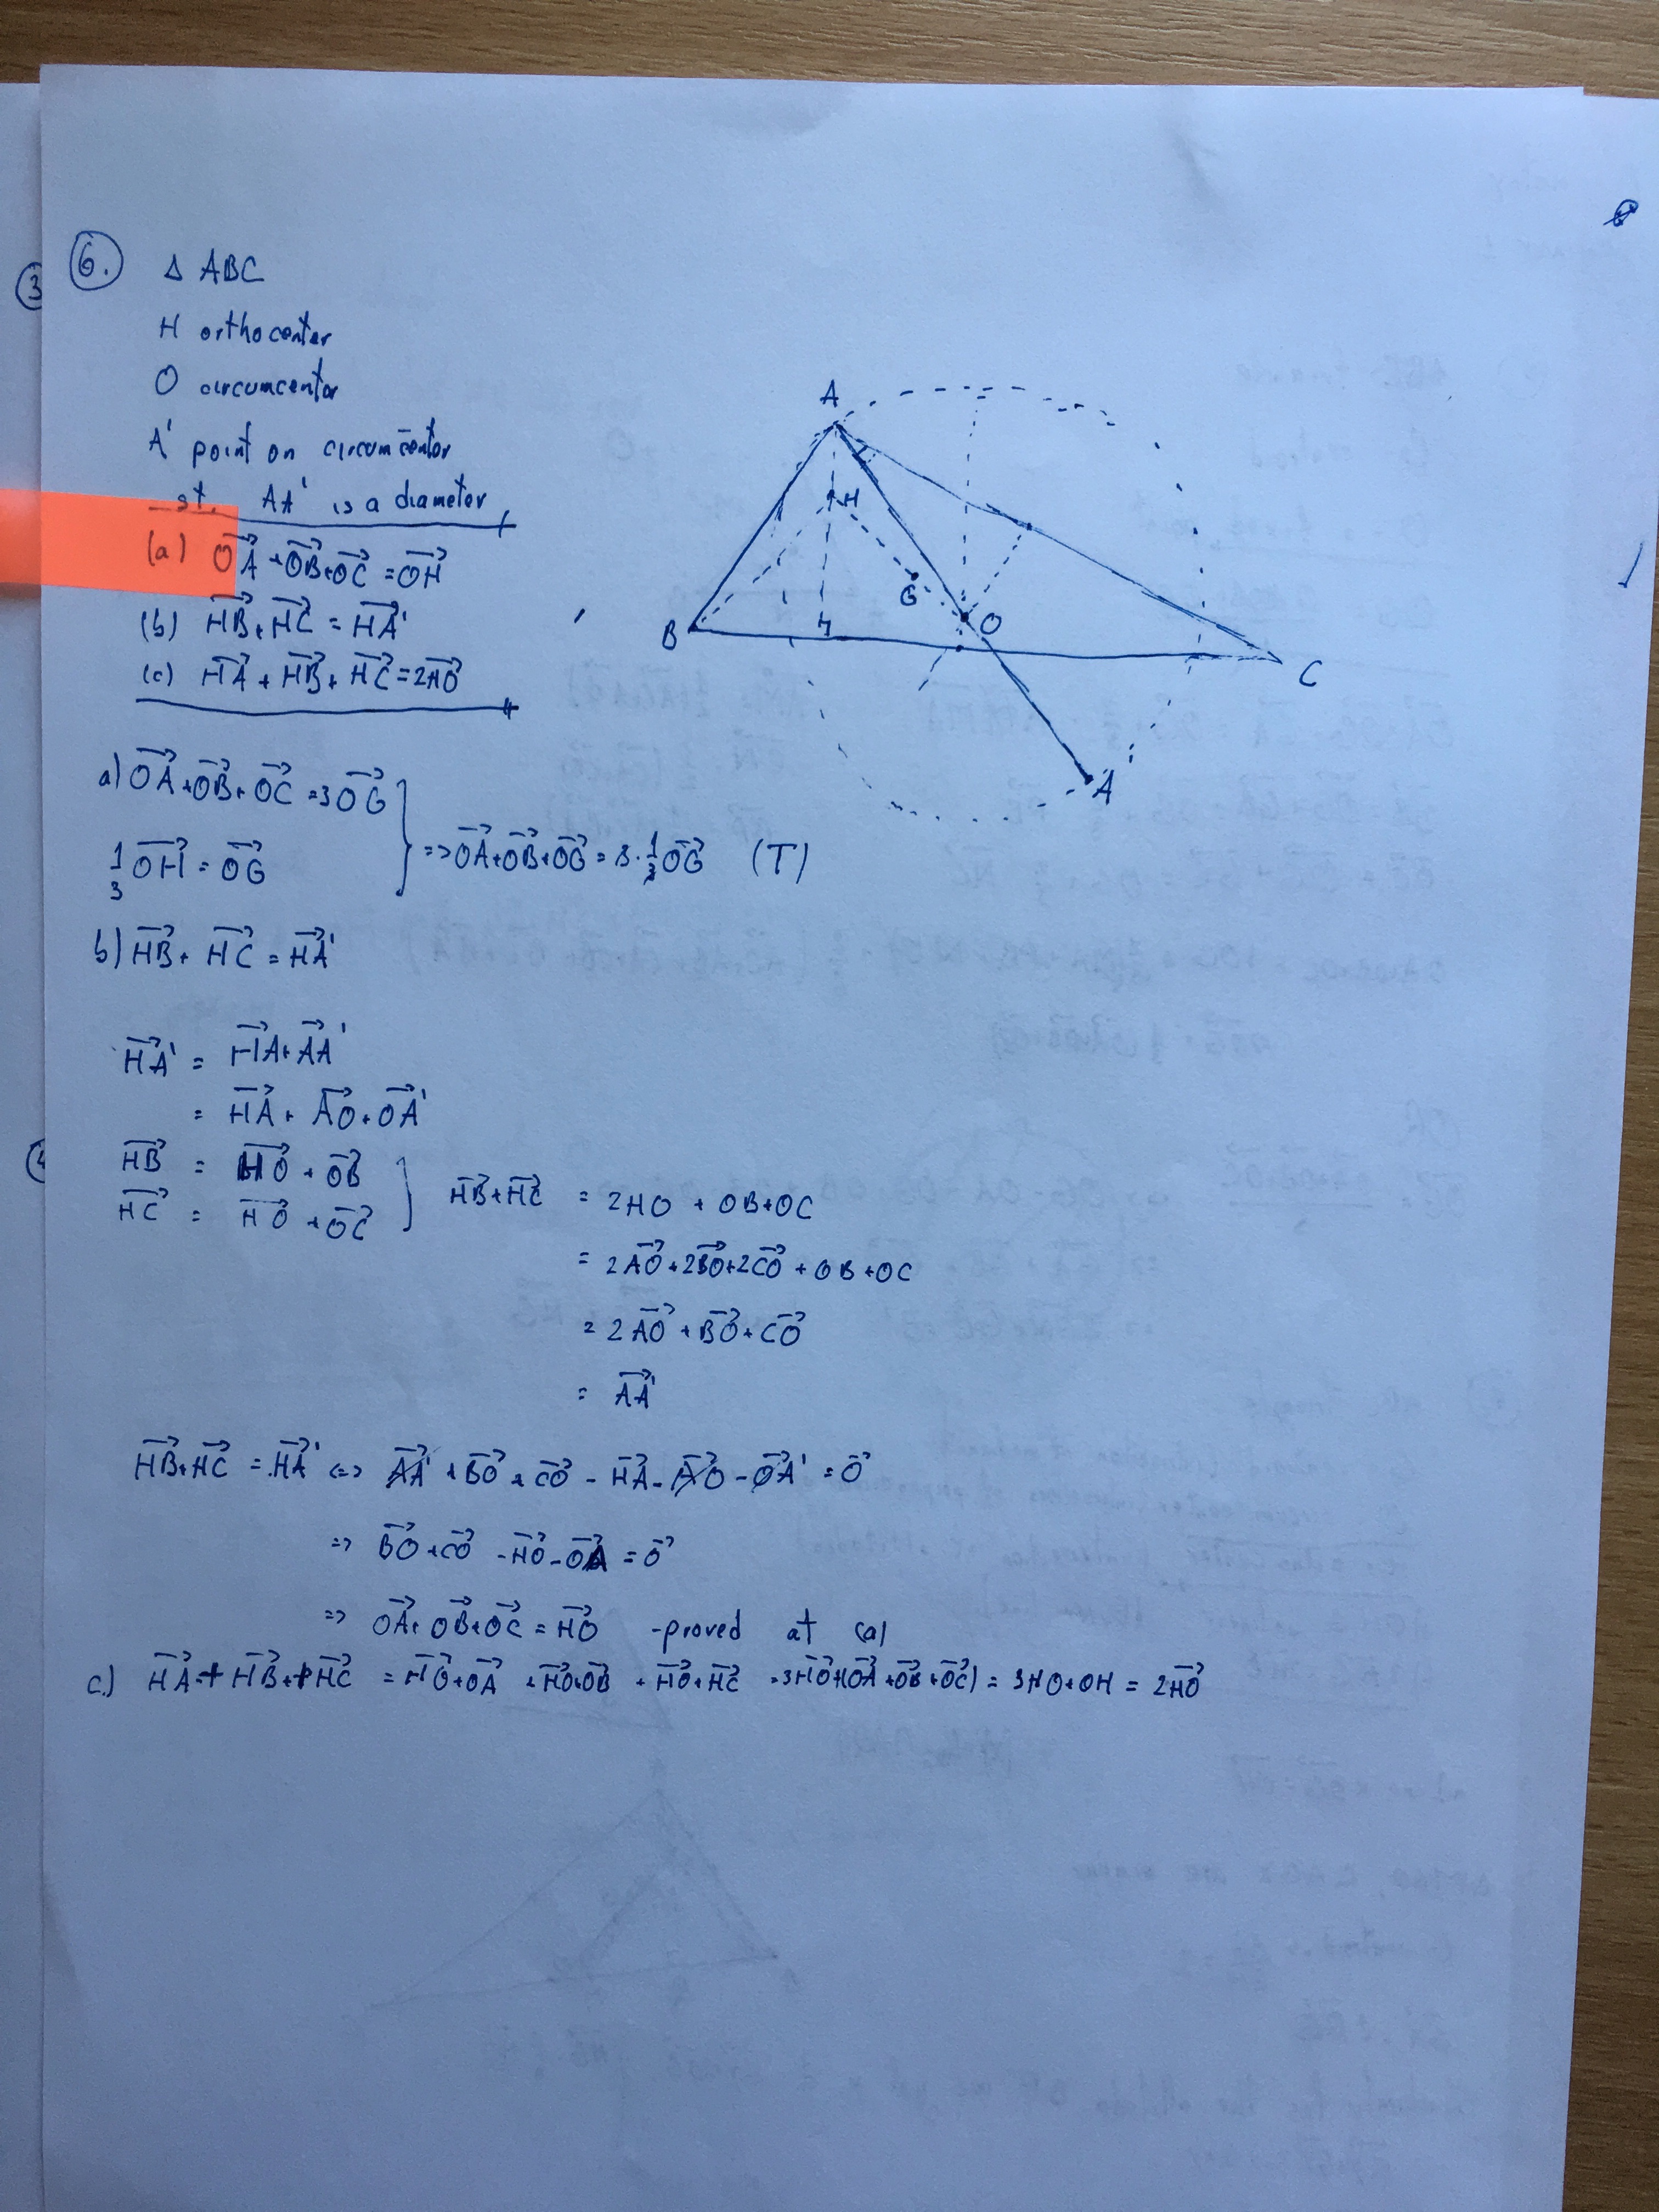 6. Δ ABC
H orthocenter
O circumcenter
A' point on circumcenter
st. AA' is a diameter
(a) OA + OB + OC = OH
(b) HB + HC = HA'
(c) HA + HB + HC = 2HO
A
H
G
O
B
C
A'
a) OA + OB + OC = 3OG
1/3 OH = OG
=> OA + OB + OG = 3 · 1/3 OG (T)
b) HB + HC = HA'
HA' = HA + AA'
= HA + AO + OA'
HB = HO + OB
HC = HO + OC
HB + HC = 2HO + OB + OC
= 2AO + 2BO + 2CO + OB + OC
= 2AO + BO + CO
= AA'
HB + HC = HA' <=> AA' + BO + CO - HA - AO - OA' = O
=> BO + CO - HO - OA = O
=> OA + OB + OC = HO - proved at (a)
c.) HA + HB + HC = HO + OA + HO + OB + HO + HC = 3HO + (OA + OB + OC) = 3HO + OH = 2HO
3